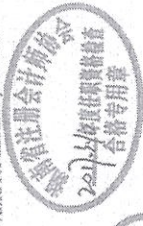 湖南省注册会计师协会
2017年度任职资格检查
合格专用章